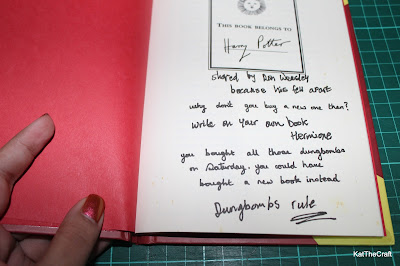 THIS BOOK BELONGS TO
Harry Potter
shared by Ron Weasley
because his fell apart
why don't you buy a new one then?
write on your own book
Hermione
you bought all those dungbombs
on Saturday, you could have
bought a new book instead
Dungbombs rule
KatTheCraft